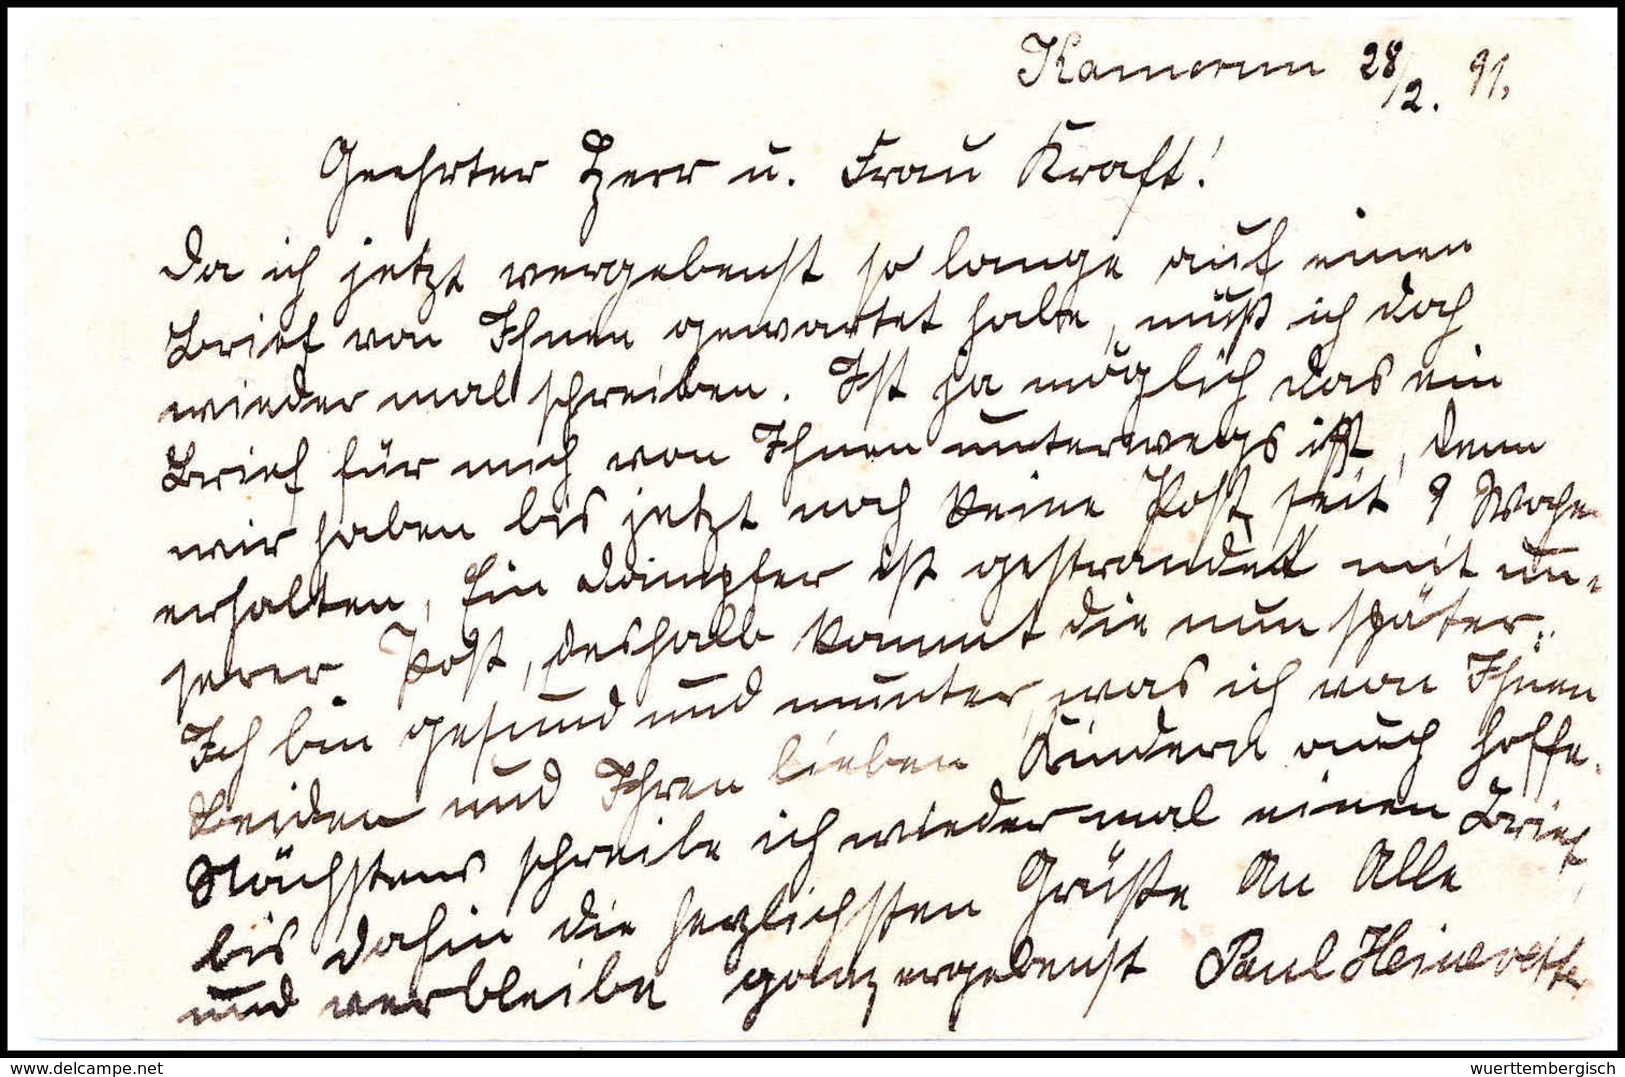 Kamerun 28/2. 91.
Geehrter Herr u. Frau Kraft!
Da ich jetzt vergebenst so lange auf einen
Brief von Ihnen gewartet habe, muß ich doch
wieder mal schreiben. Ist ja möglich das ein
Brief für mich von Ihnen unterwegs ist, denn
wir haben bis jetzt noch keine Post seit 9 Wochen
erhalten, Ein Dampfer ist gestrandet mit un-
serer Post, deshalb kommt die nun später.
Ich bin gesund und munter, was ich von Ihnen
Beiden und Ihren lieben Kindern auch hoffe.
Nächstens schreibe ich wieder mal einen Brief,
bis dahin die herzlichsten Grüße An Alle
und verbleibe ganz ergebenst Paul
www.delcampe.net wuerttembergisch